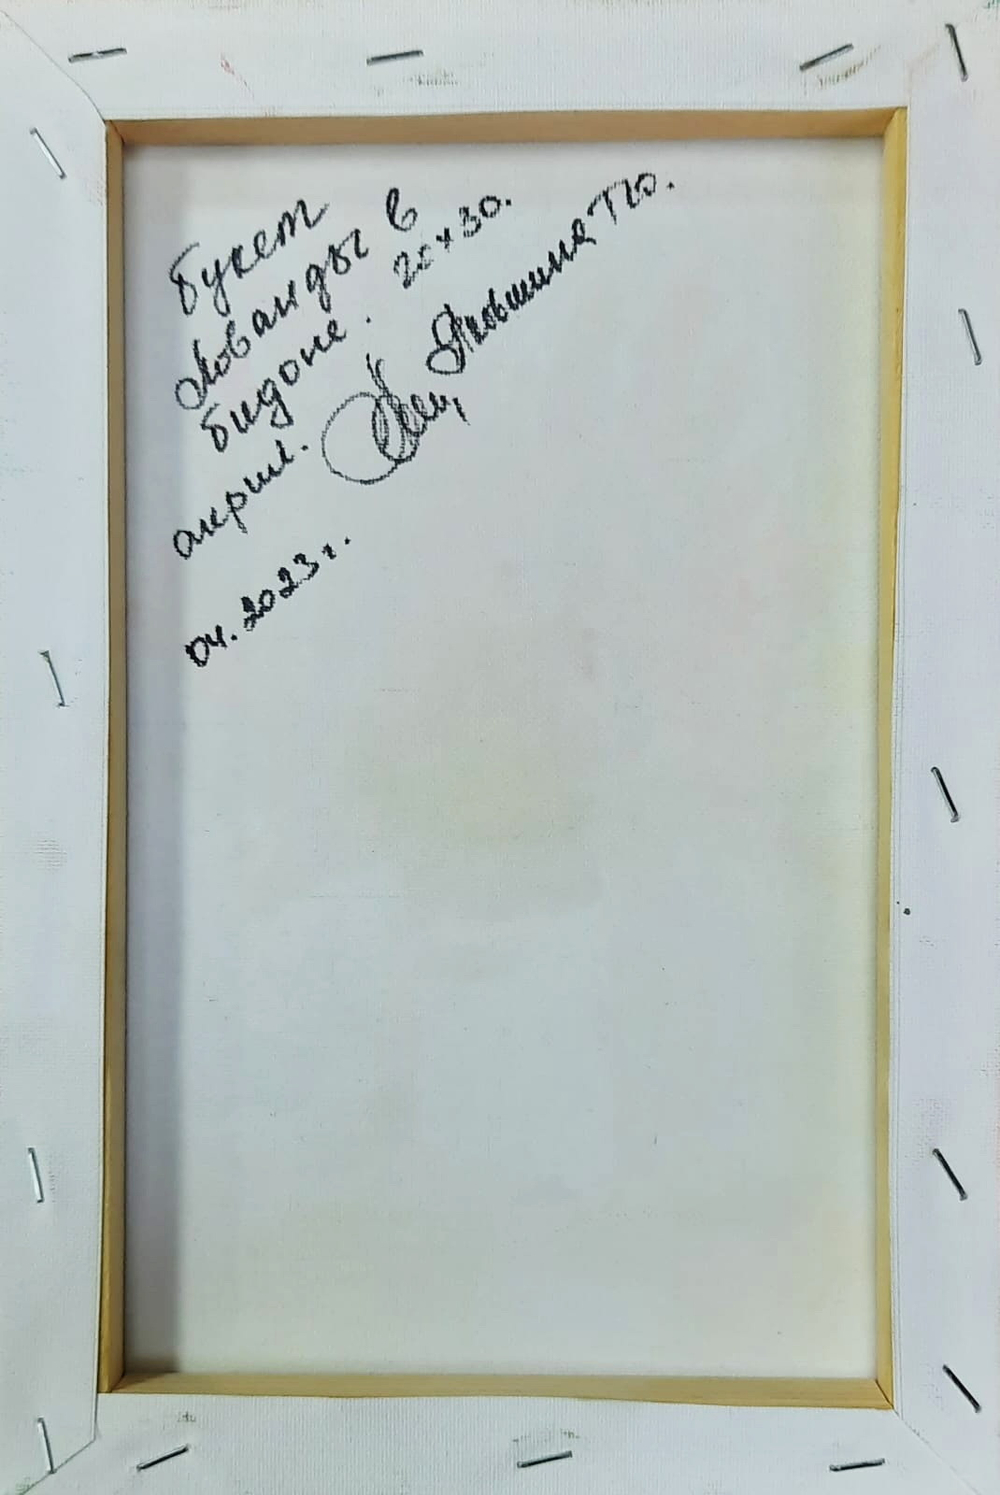 Букет
Лованды в
бидоне. 20×30.
акрил. Яковшина Т.Ю.
04.2023 г.